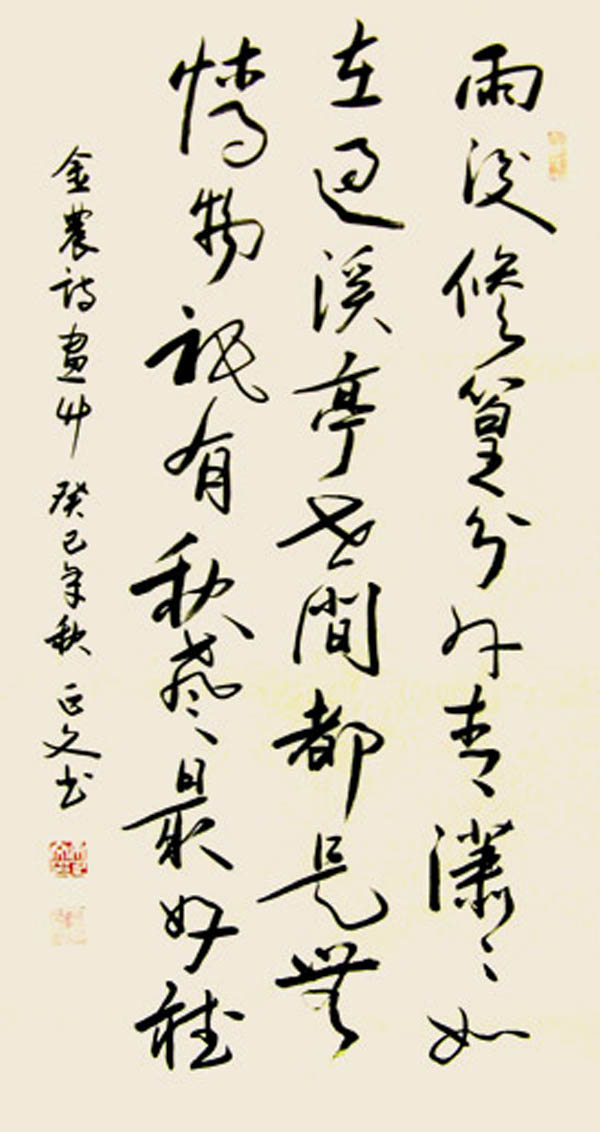 雨後修篁分外青瀟々如
在過溪亭世間都是無
情物祇有秋聲最好聽
金農詩畫竹 癸巳年秋 正文书